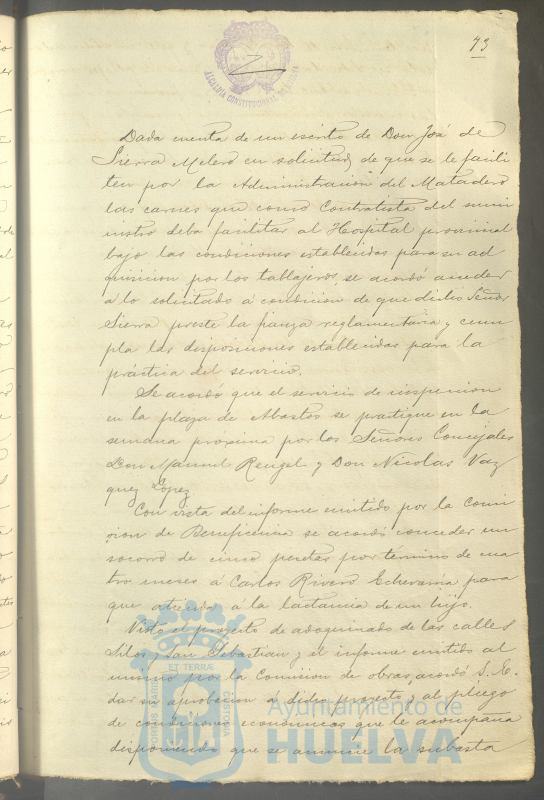 73
ALCALDIA CONSTITUCIONAL DE HUELVA
Dada cuenta de un escrito de Don José de
Sierra Melero en solicitud de que se le facili
ten por la Administracion del Matadero
las carnes que como Contratista del sumi
nistro deba facilitar al Hospital provincial
bajo las condiciones establecidas para su ad
quisicion por los tablajeros, se acordó acceder
á lo solicitado á condicion de que dicho Señor
Sierra preste la fianza reglamentaria y cum
pla las disposiciones establecidas para la
práctica del servicio.
Se acordó que el servicio de inspeccion
en la plaza de Abastos se practique en la
semana proxima por los Señores Concejales
Don Manuel Rengel y Don Nicolas Vaz
quez López
Con vista del informe emitido por la Comi
sion de Beneficencia se acordó conceder un
socorro de cinco pesetas por término de cua
tro meses á Carlos Rivero Echevarria para
que atienda á la lactancia de un hijo.
Visto el proyecto de adoquinado de las calles
Silos y San Sebastian y el informe emitido al
mismo por la Comision de obras, acordó S. E.
dar su aprobacion á dicho proyecto y al pliego
de condiciones económicas que le acompaña
disponiendo que se anuncie la subasta
PORTUS MARIS ET TERRAE CUSTODIA
Ayuntamiento de
HUELVA